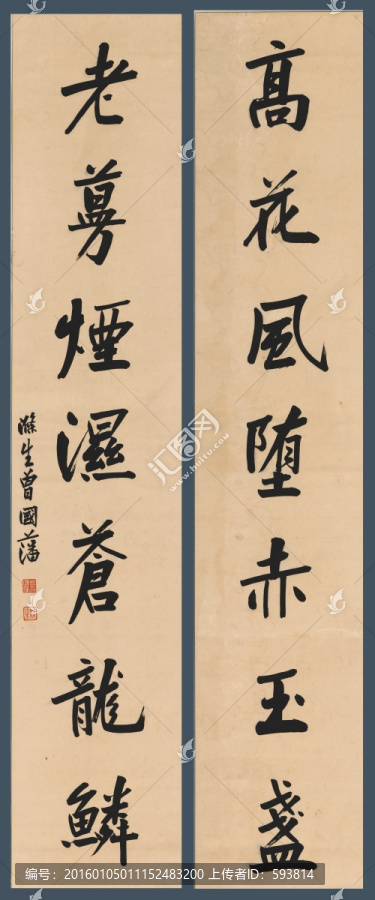 高花風堕赤玉盏
老蔓煙濕蒼龍鱗
滌生曾國藩
汇图网
www.huitu.com
编号：20160105011152483200 上传者ID：593814